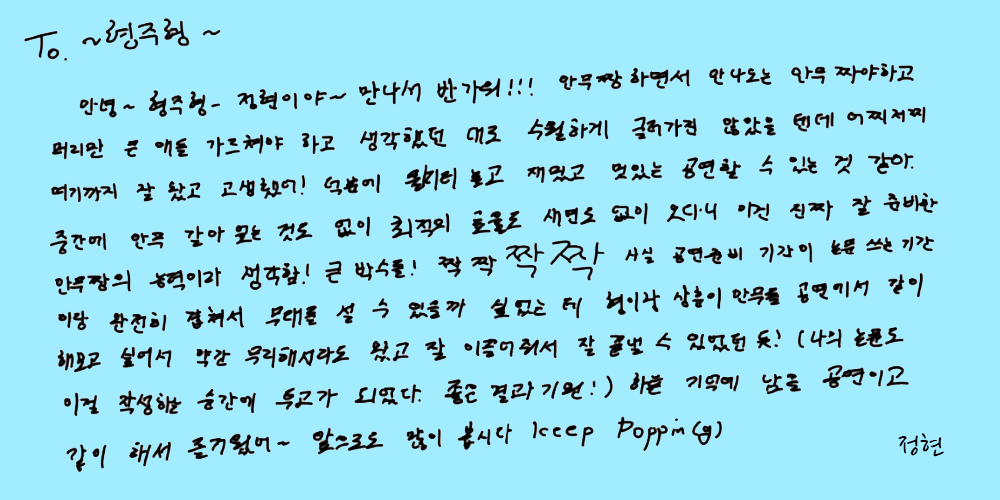 To. ~형주형~
안녕~ 형주형- 정현이야~ 만나서 반가워!!! 안무짱하면서 안나오는 안무 짜야하고
머리만 큰 애들 가르쳐야 하고 생각했던 대로 수월하게 굴러가진 않았을 텐데 어찌저찌
여기까지 잘 왔고 고생했어! 덕분에 퀄리티 높고 재밌고 멋있는 공연할 수 있는 것 같아.
중간에 안무 갈아 엎는 것도 없이 최적의 효율로 새면도 없이 오다니 이건 진짜 잘 준비한
안무짱의 능력이라 생각함! 큰 박수를! 짝 짝 짝 짝 사실 공연준비 기간이 논문 쓰는 기간
이랑 완전히 겹쳐서 무대를 설 수 있을까 싶었는 데 형이랑 상흠이 안무를 공연에서 같이
해보고 싶어서 약간 무리해서라도 왔고 잘 이끌어줘서 잘 끝낼 수 있었던 듯! (나의 논문도
이걸 작성하는 순간에 투고가 되었다. 좋은 결과 기원!) 하튼 기억에 남을 공연이고
같이 해서 즐거웠어~ 앞으로도 많이 봅시다 keep Poppin(g)
정현